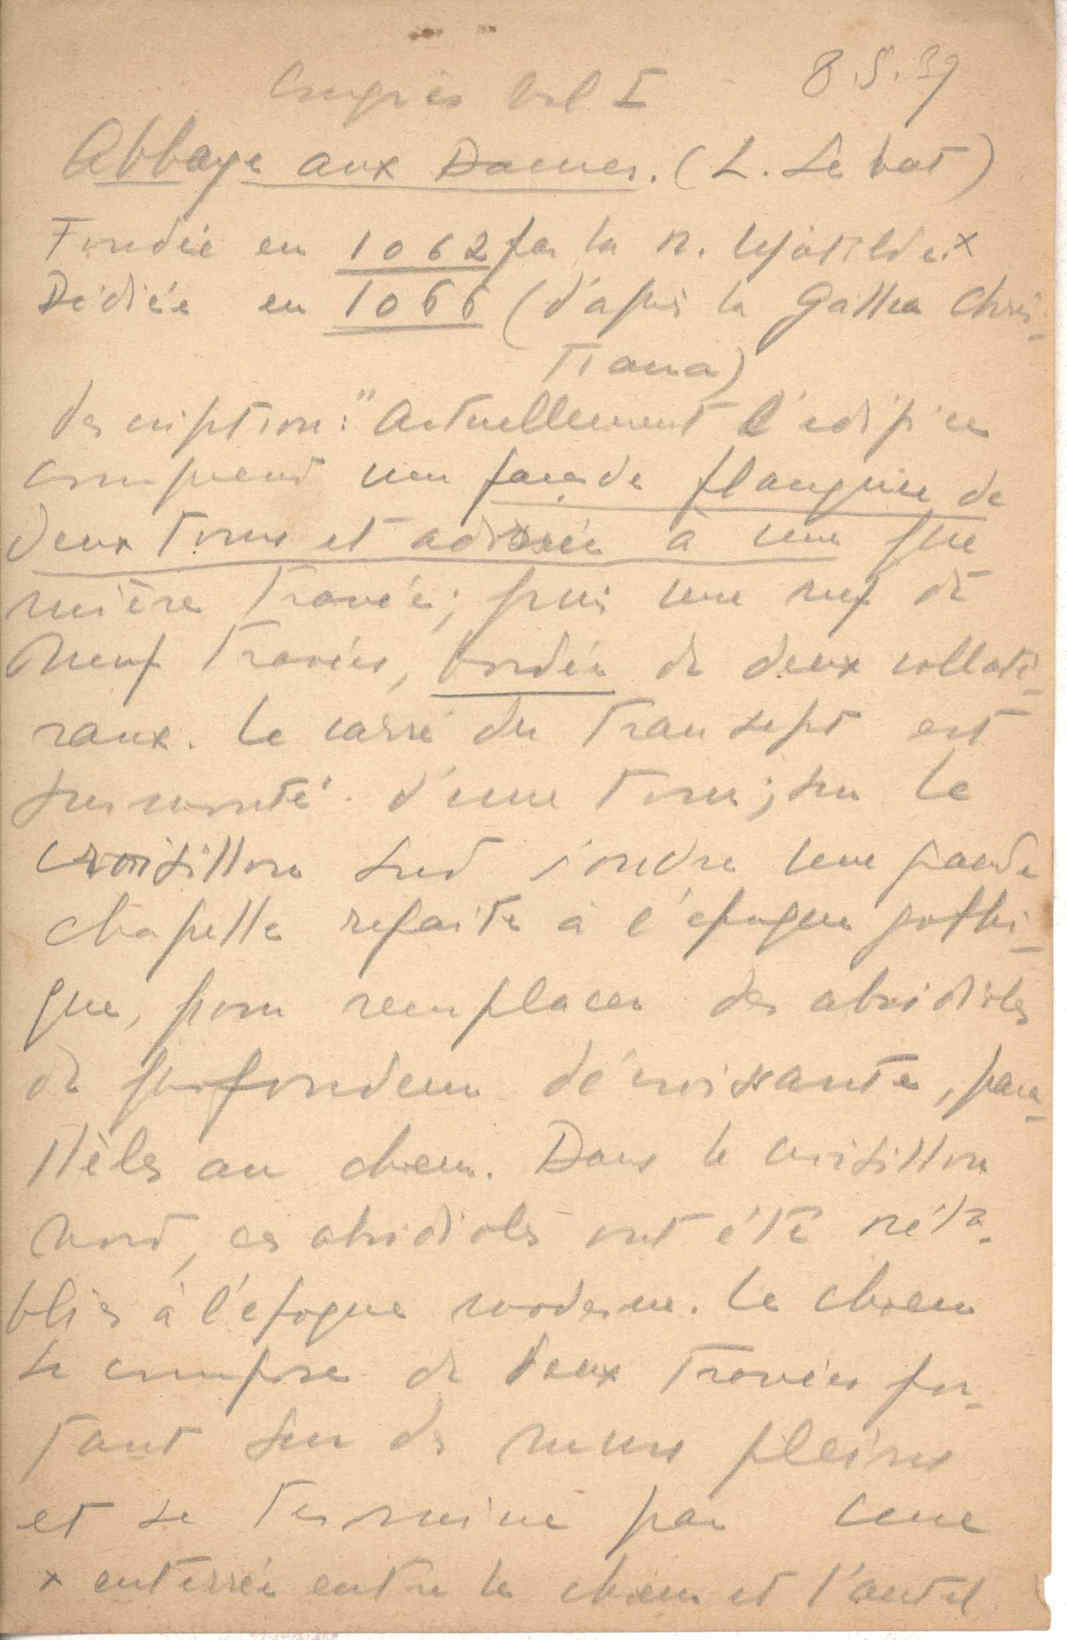 Congrès Vol I 8.5.39
Abbaye aux Dames. (L. Serbat)
Fondée en 1062 par la R. Mathilde.x
Dédiée en 1066 (d'après la Gallia Chris-
tiana)
description: "Actuellement l'édifice
comprend une façade flanquée de
deux tours et adossée à une pre
mière travée; puis une nef de
neuf travées, bordée de deux collaté-
raux. Le carré du transept est
surmonté d'une tour; sur le
croisillon sud s'ouvre une grande
chapelle refaite à l'époque gothi-
que, pour remplacer des absidioles
de profondeur décroissante, para-
llèles au chœur. Dans le croisillon
nord, ces absidioles ont été réta-
blies à l'époque moderne. Le chœur
se compose de deux travées por-
tant sur des murs pleins
et se termine par une
x enterrée entre le chœur et l'autel